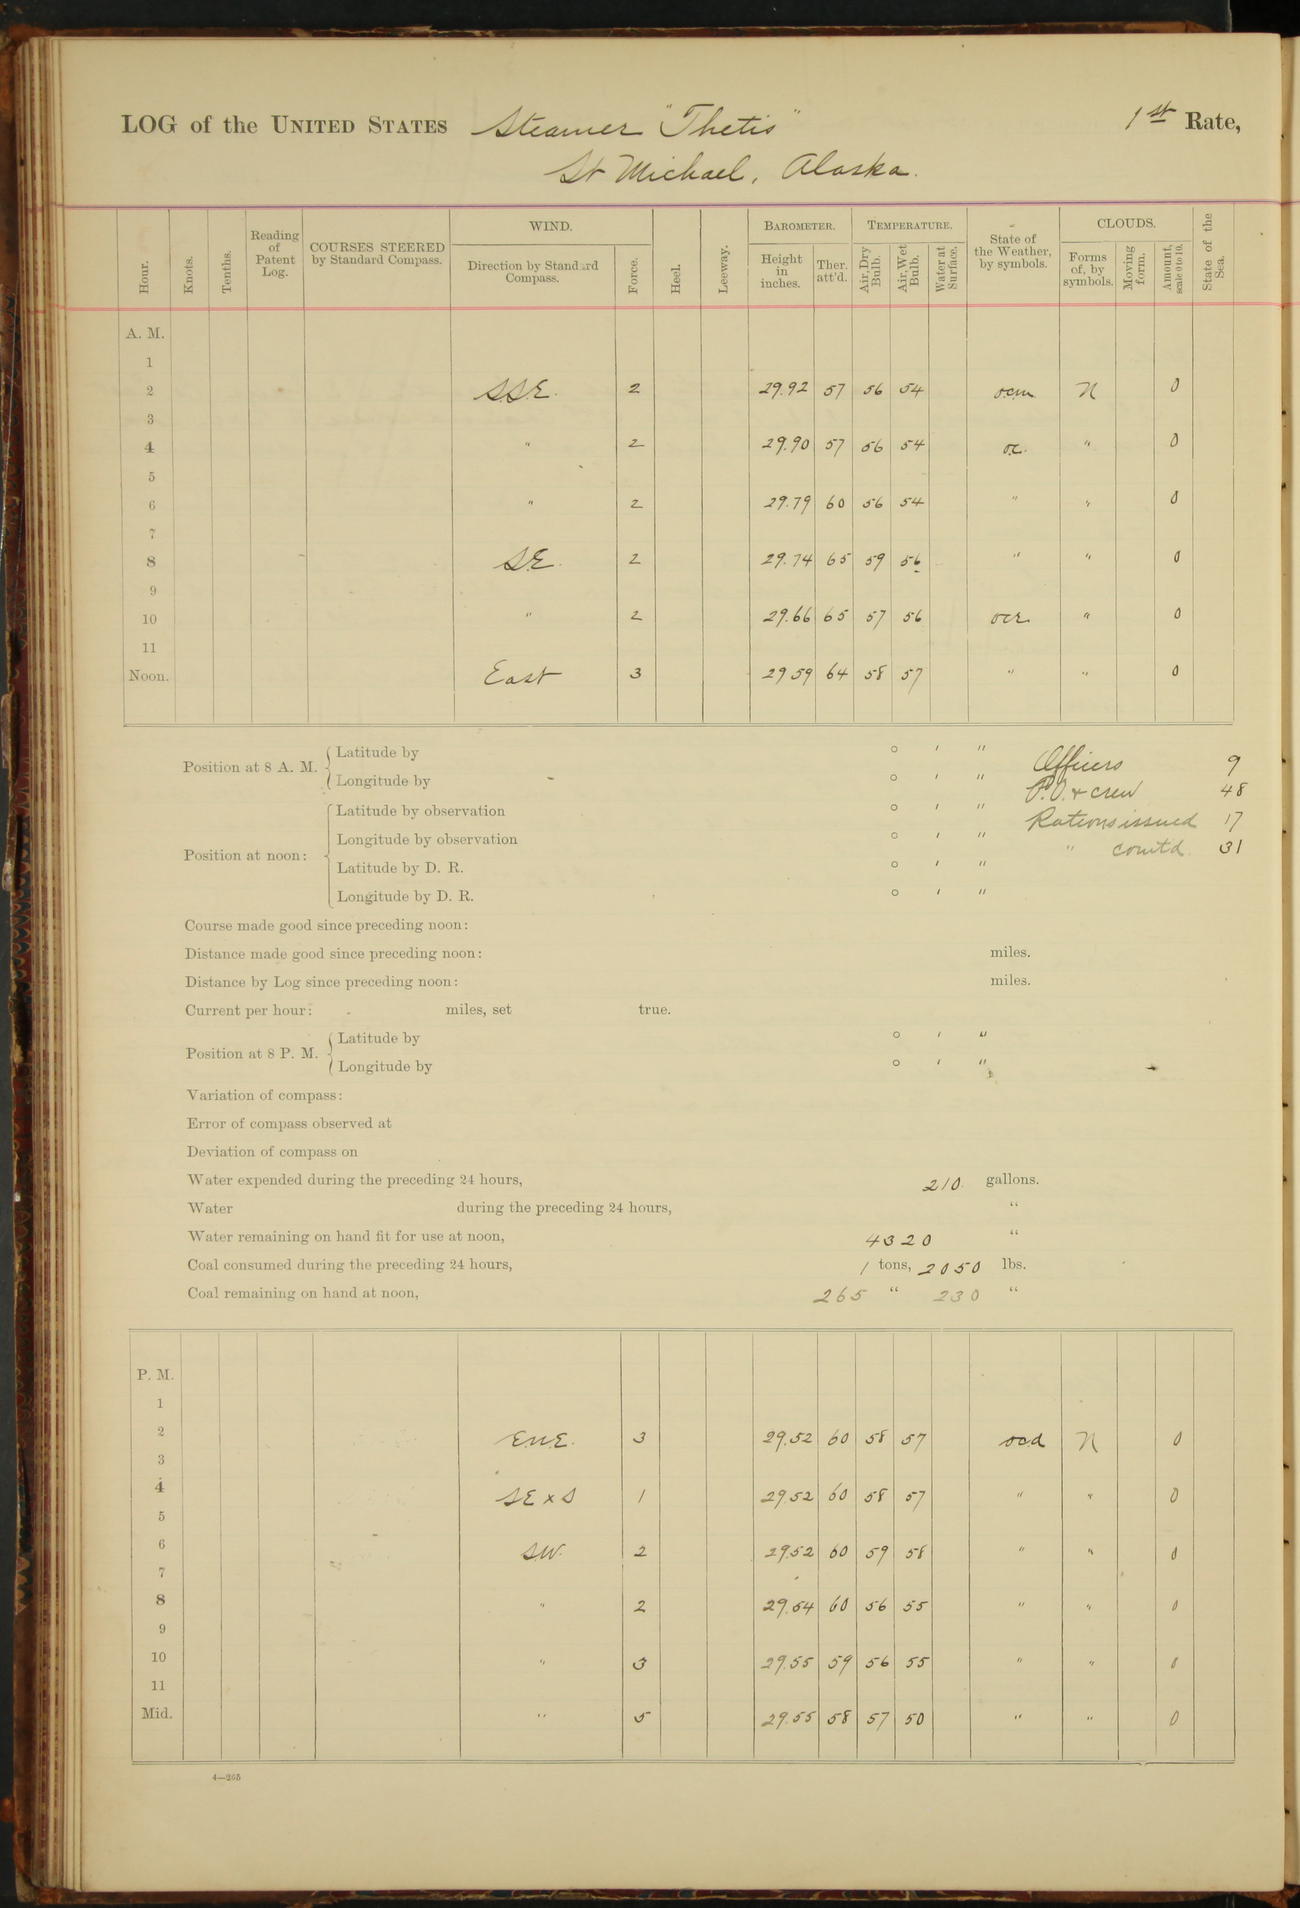 LOG of the UNITED STATES Steamer "Thetis" 1st Rate,
St Michael, Alaska.
Hour. Knots. Tenths. Reading of Patent Log. COURSES STEERED by Standard Compass. WIND. Direction by Standard Compass. Force. Heel. Leeway. BAROMETER. Height in inches. Ther. att'd. TEMPERATURE. Air, Dry Bulb. Air, Wet Bulb. Water at Surface. State of the Weather, by symbols. CLOUDS. Forms of, by symbols. Moving form. Amount, scale 0 to 10. State of the Sea.
A. M.
1
2 SSE. 2 29.92 57 56 54 ocm N 0
3
4 " 2 29.90 57 56 54 oc. " 0
5
6 " 2 29.79 60 56 54 " " 0
7
8 SE. 2 29.74 65 59 56 " " 0
9
10 " 2 29.66 65 57 56 ocr " 0
11
Noon. East 3 29 59 64 58 57 " " 0
Position at 8 A. M. Latitude by ° ' " Officers 9
Longitude by ° ' " P.O. & crew 48
Position at noon: Latitude by observation ° ' " Rations issued 17
Longitude by observation ° ' " " comt'd. 31
Latitude by D. R. ° ' "
Longitude by D. R. ° ' "
Course made good since preceding noon:
Distance made good since preceding noon: miles.
Distance by Log since preceding noon: miles.
Current per hour: miles, set true.
Position at 8 P. M. Latitude by ° ' "
Longitude by ° ' "
Variation of compass:
Error of compass observed at
Deviation of compass on
Water expended during the preceding 24 hours, 210. gallons.
Water during the preceding 24 hours, "
Water remaining on hand fit for use at noon, 4320 "
Coal consumed during the preceding 24 hours, 1 tons, 2050 lbs.
Coal remaining on hand at noon, 265 " 230 "
P. M.
1
2 ENE. 3 29.52 60 58 57 ocd N 0
3
4 SE x S 1 29.52 60 58 57 " " 0
5
6 SW. 2 29.52 60 59 58 " " 0
7
8 " 2 29.54 60 56 55 " " 0
9
10 " 3 29.55 59 56 55 " " 0
11
Mid. " 5 29.55 58 57 50 " " 0
4—265